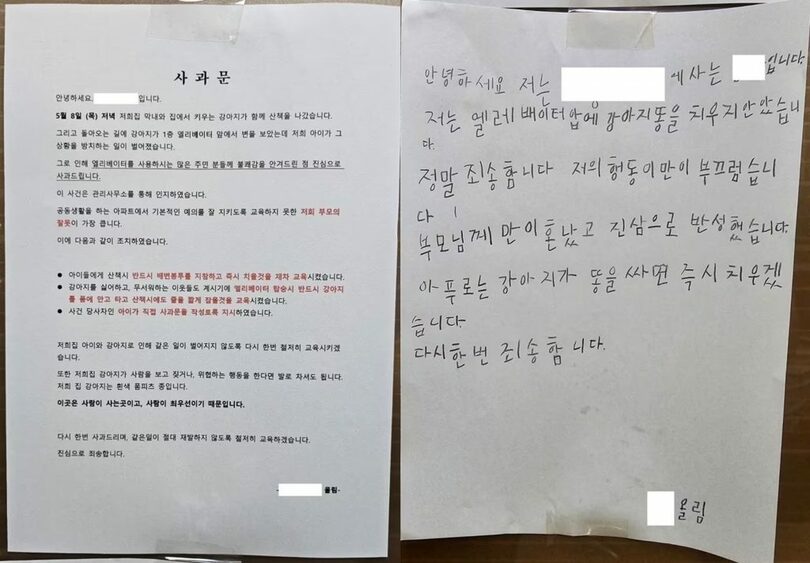 사 과 문
안녕하세요. 입니다.
5월 8일 (목) 저녁 저희집 막내와 집에서 키우는 강아지가 함께 산책을 나갔습니다.
그리고 돌아오는 길에 강아지가 1층 엘리베이터 앞에서 변을 보았는데 저희 아이가 그
상황을 방치하는 일이 벌어졌습니다.
그로 인해 엘리베이터를 사용하시는 많은 주면 분들께 불쾌감을 안겨드린 점 진심으로
사과드립니다.
이 사건은 관리사무소를 통해 인지하였습니다.
공동생활을 하는 아파트에서 기본적인 예의를 잘 지키도록 교육하지 못한 저희 부모의
잘못이 가장 큽니다.
이에 다음과 같이 조치하였습니다.
● 아이들에게 산책시 반드시 배변봉투를 지참하고 즉시 치울것을 재차 교육시켰습니다.
● 강아지를 싫어하고, 무서워하는 이웃들도 계시기에 엘리베이터 탑승시 반드시 강아지
를 품에 안고 타고 산책시에도 줄을 짧게 잡을것을 교육시켰습니다.
● 사건 당사자인 아이가 직접 사과문을 작성토록 지시하였습니다.
저희집 아이와 강아지로 인해 같은 일이 벌어지지 않도록 다시 한번 철저히 교육시키겠
습니다.
또한 저희집 강아지가 사람을 보고 짖거나, 위협하는 행동을 한다면 발로 차셔도 됩니다.
저희 집 강아지는 흰색 폼피츠 종입니다.
이곳은 사람이 사는곳이고, 사람이 최우선이기 때문입니다.
다시 한번 사과드리며, 같은일이 절대 재발하지 않도록 철저히 교육하겠습니다.
진심으로 죄송합니다.
- 올림-
안녕하세요 저는 에사는 입니다.
저는 엘레베이터앞에 강아지똥을 치우지안았습니
다.
정말 죄송함니다 저의행동이만이부끄럽습니
다
부모님께 만이혼났고 진삼으로 반성했습니다.
아푸로는 강아지가 똥을싸면 즉시 치우겠
습니다.
다시한번 죄송함니다.
올림